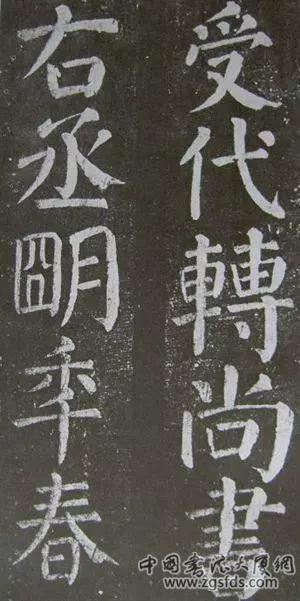 受代轉尚書
右丞明年春
中國書法大展網
www.zgsfds.com